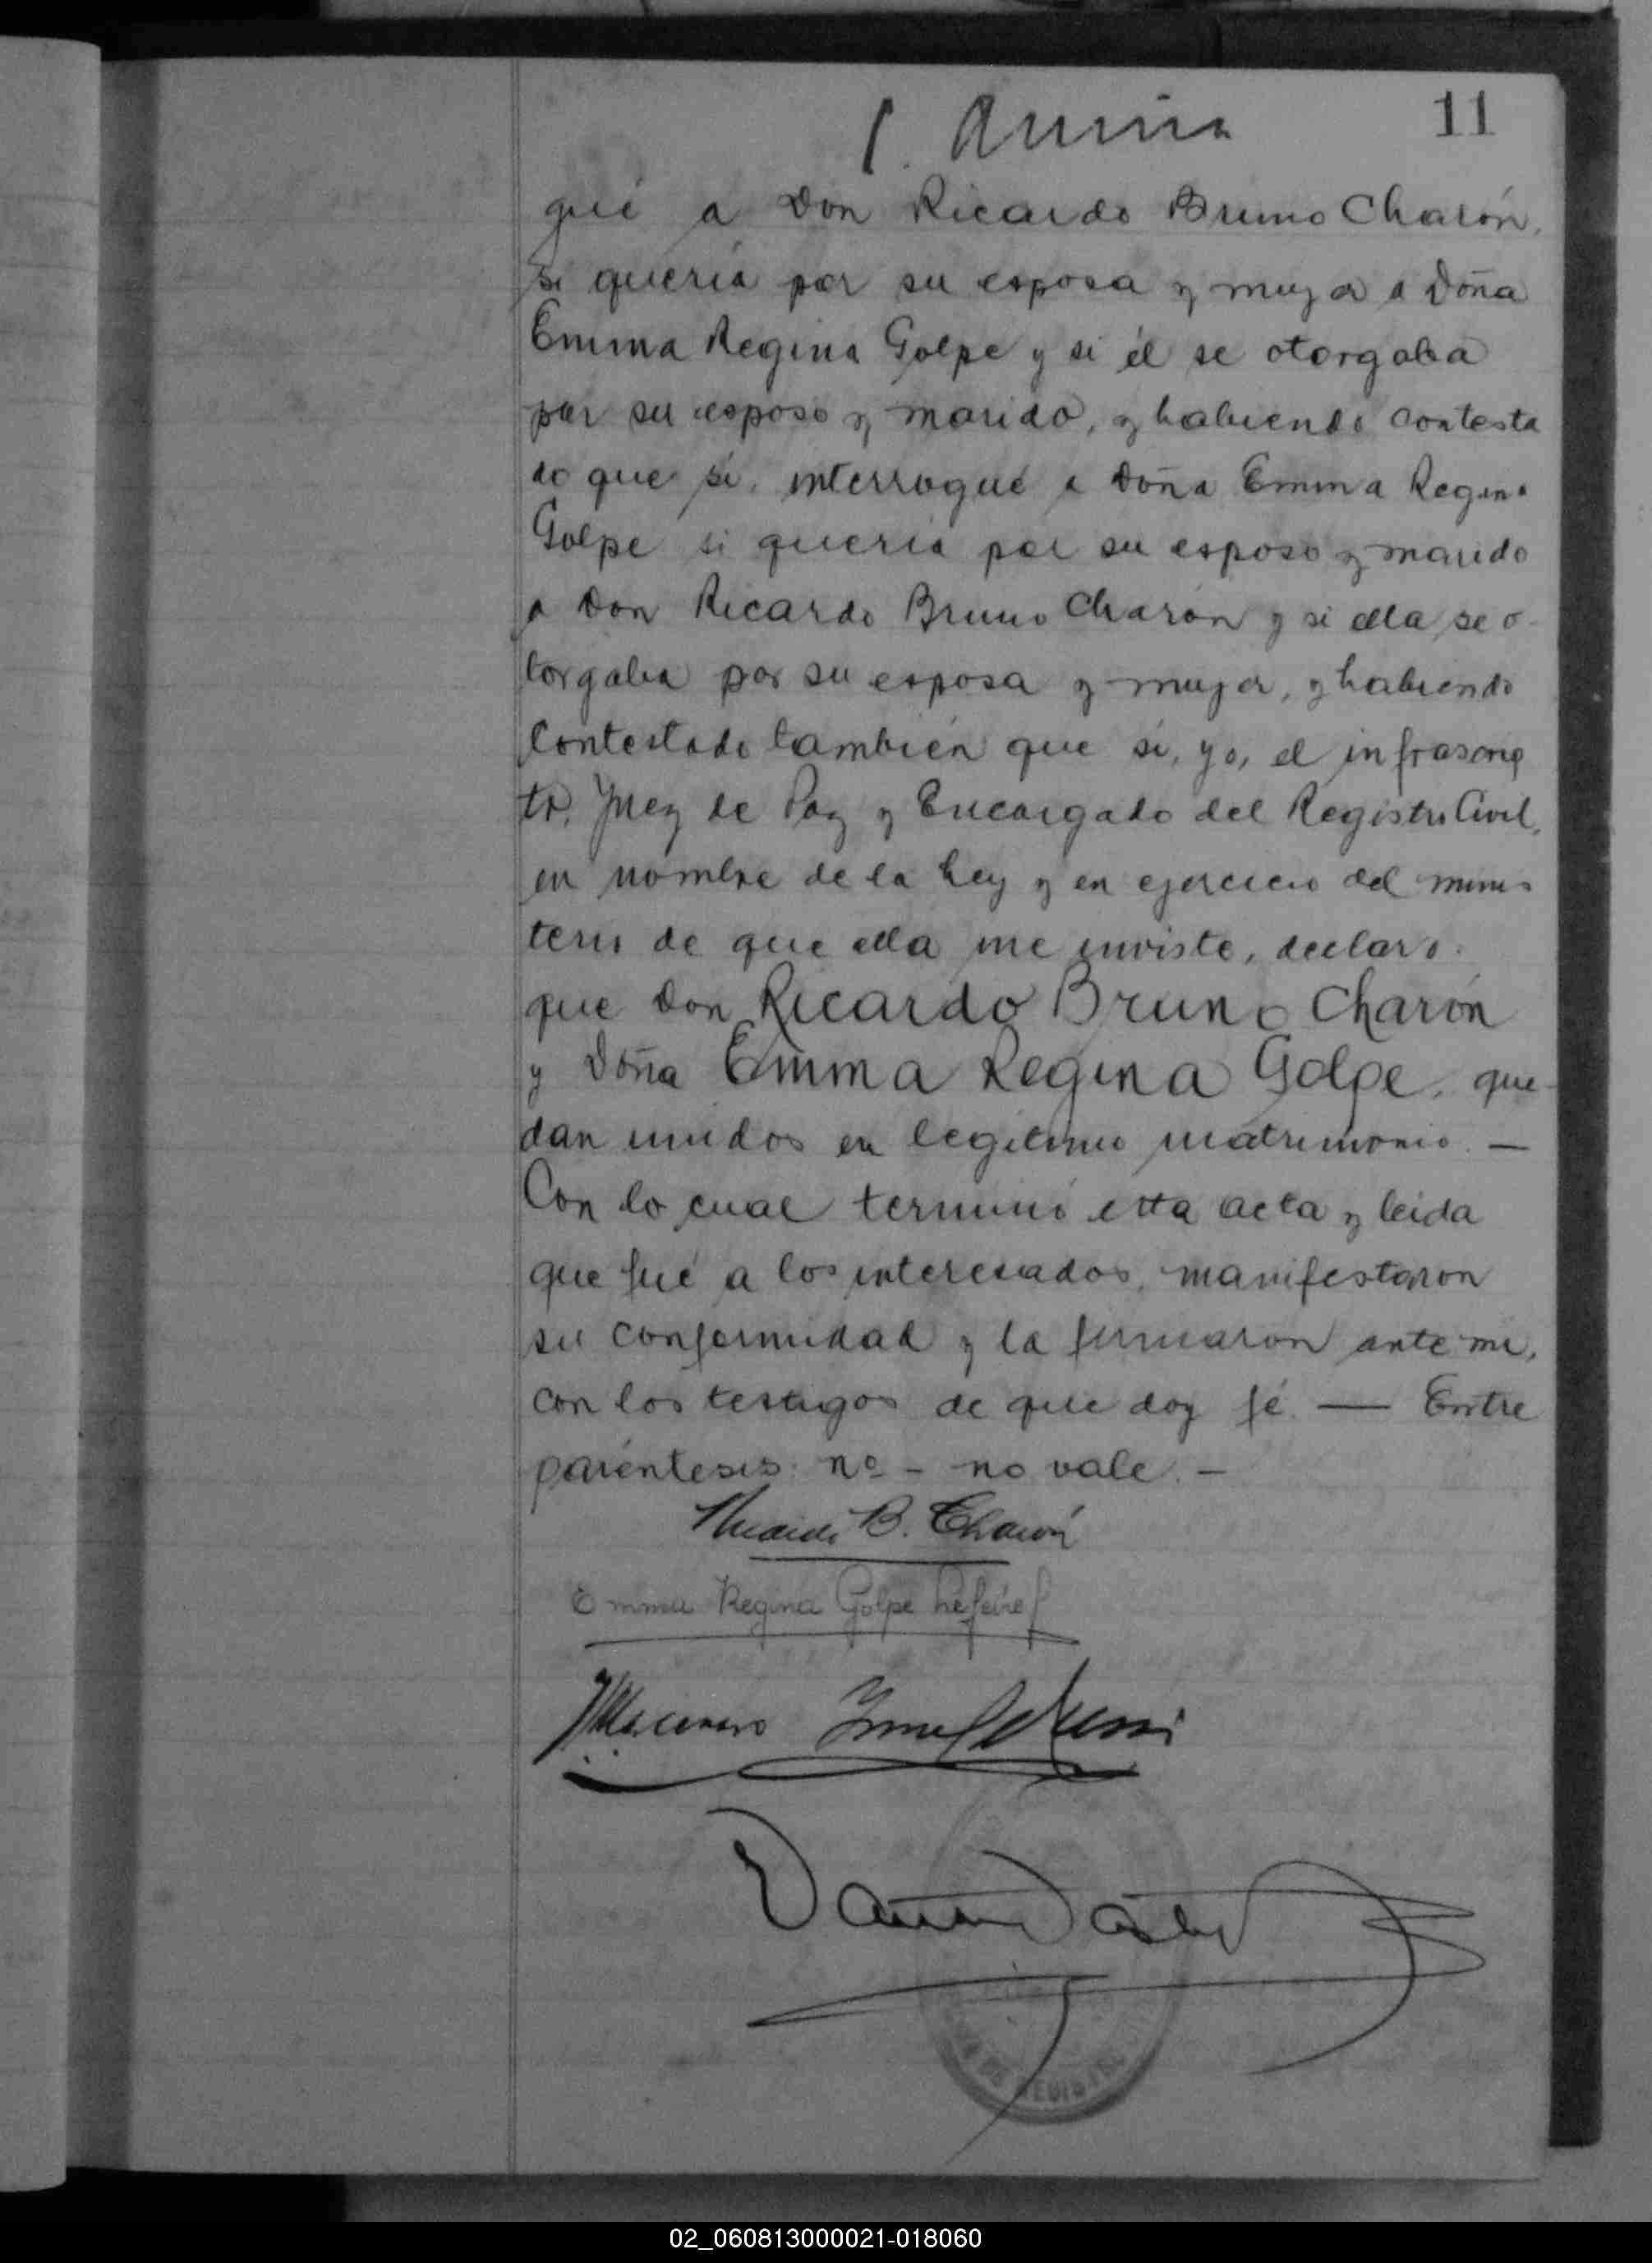 11
qué a Don Ricardo Bruno Charón,
si quería por su esposa y mujer a Doña
Emma Regina Golpe y si él se otorgaba
por su esposo y marido, y habiendo contesta
do que sí, interrogué a Doña Emma Regina
Golpe si quería por su esposo y marido
a Don Ricardo Bruno Charón y si ella se o-
torgaba por su esposa y mujer, y habiendo
contestado también que sí, yo, el infrascrip
to, Juez de Paz y Encargado del Registro Civil,
en nombre de la Ley y en ejercicio del minis
terio de que ella me inviste, declaro:
que Don Ricardo Bruno Charón
y Doña Emma Regina Golpe, que-
dan unidos en legítimo matrimonio. —
Con lo cual terminó esta acta y leida
que fué a los interesados, manifestaron
su conformidad y la firmaron ante mi,
con los testigos de que doy fé. — Entre
paréntesis: nº - no vale. -
Ricardo B. Charón
Emma Regina Golpe
02_060813000021-018060